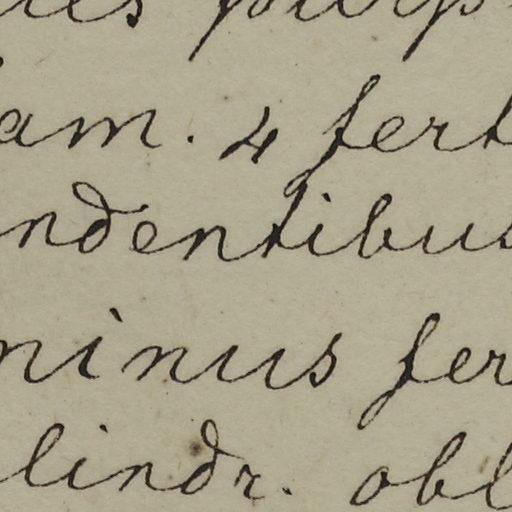 am. 4 fert
ndentibus
ninus fer
lindr. obl